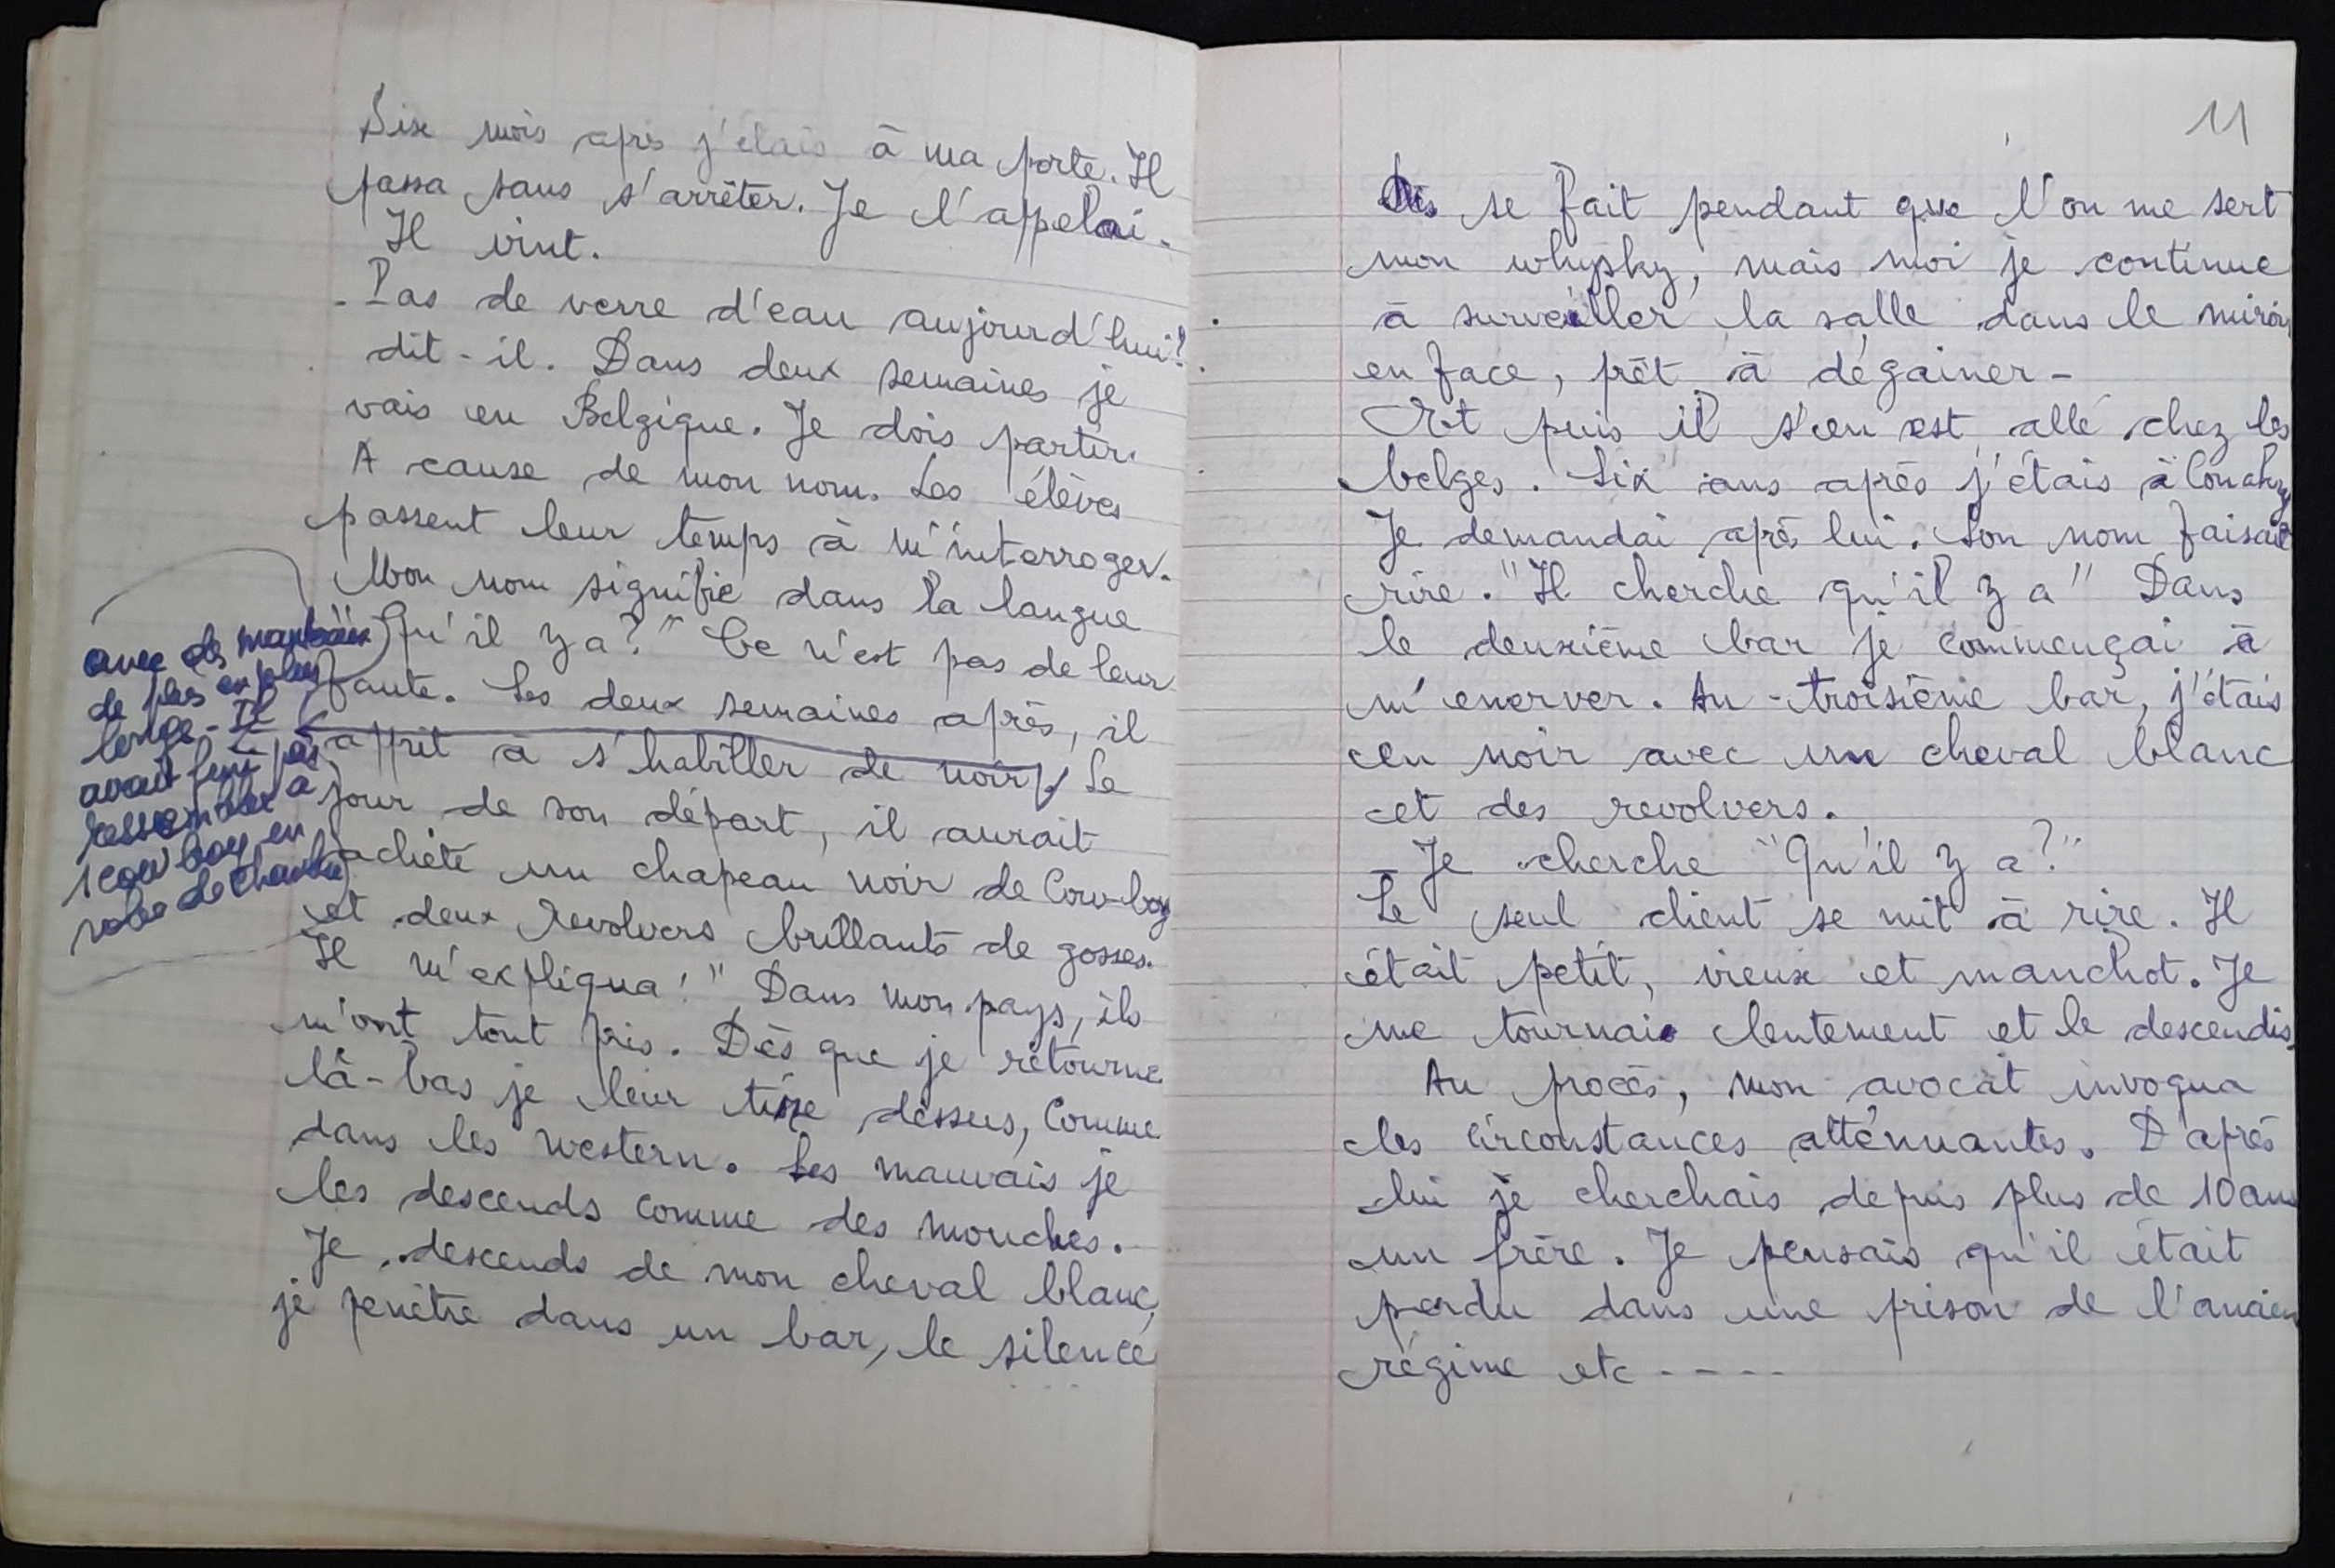 Six mois après j'étais à ma porte. Il
passa sans s'arrêter. Je l'appelai.
Il vint.
- Pas de verre d'eau aujourd'hui?
dit-il. Dans deux semaines je
vais en Belgique. Je dois partir.
A cause de mon nom. Les élèves
passent leur temps à m'interroger.
Mon nom signifie dans la langue
"Qu'il y a?" Ce n'est pas de leur
faute. Les deux semaines après, il
apprit à s'habiller de noir. Le
jour de son départ, il aurait
acheté un chapeau noir de Cow-boy
et deux revolvers brillants de gosses.
Il m'expliqua! "Dans mon pays, ils
m'ont tout pris. Dès que je retourne
là-bas je leur tire dessus, comme
dans les western. Les mauvais je
les descends comme des mouches.
Je descends de mon cheval blanc,
je penètre dans un bar, le silence
avec des manteaux
de plus en plus
longs - Il
avait fini par
ressembler à
1 cow boy en
robe de chambre
11
se fait pendant que l'on me sert
mon whysky, mais moi je continue
à surveiller la salle dans le miroir
en face, prêt à dégainer -
Et puis il s'en est allé chez les
belges. Six ans après j'étais à Conakry
Je demandai après lui. Son nom faisait
rire. "Il cherche qu'il y a" Dans
le deuxième bar je commençai à
m'enerver. Au troisième bar, j'étais
en noir avec un cheval blanc
et des revolvers.
- Je cherche "Qu'il y a?"
Le seul client se mit à rire. Il
était petit, vieux et manchot. Je
me tournai lentement et le descendis.
Au procès, mon avocat invoqua
les circonstances atténuantes. D'après
lui je cherchais depuis plus de 10 ans
un frère. Je pensais qu'il était
perdu dans une prison de l'ancien
régime etc ----